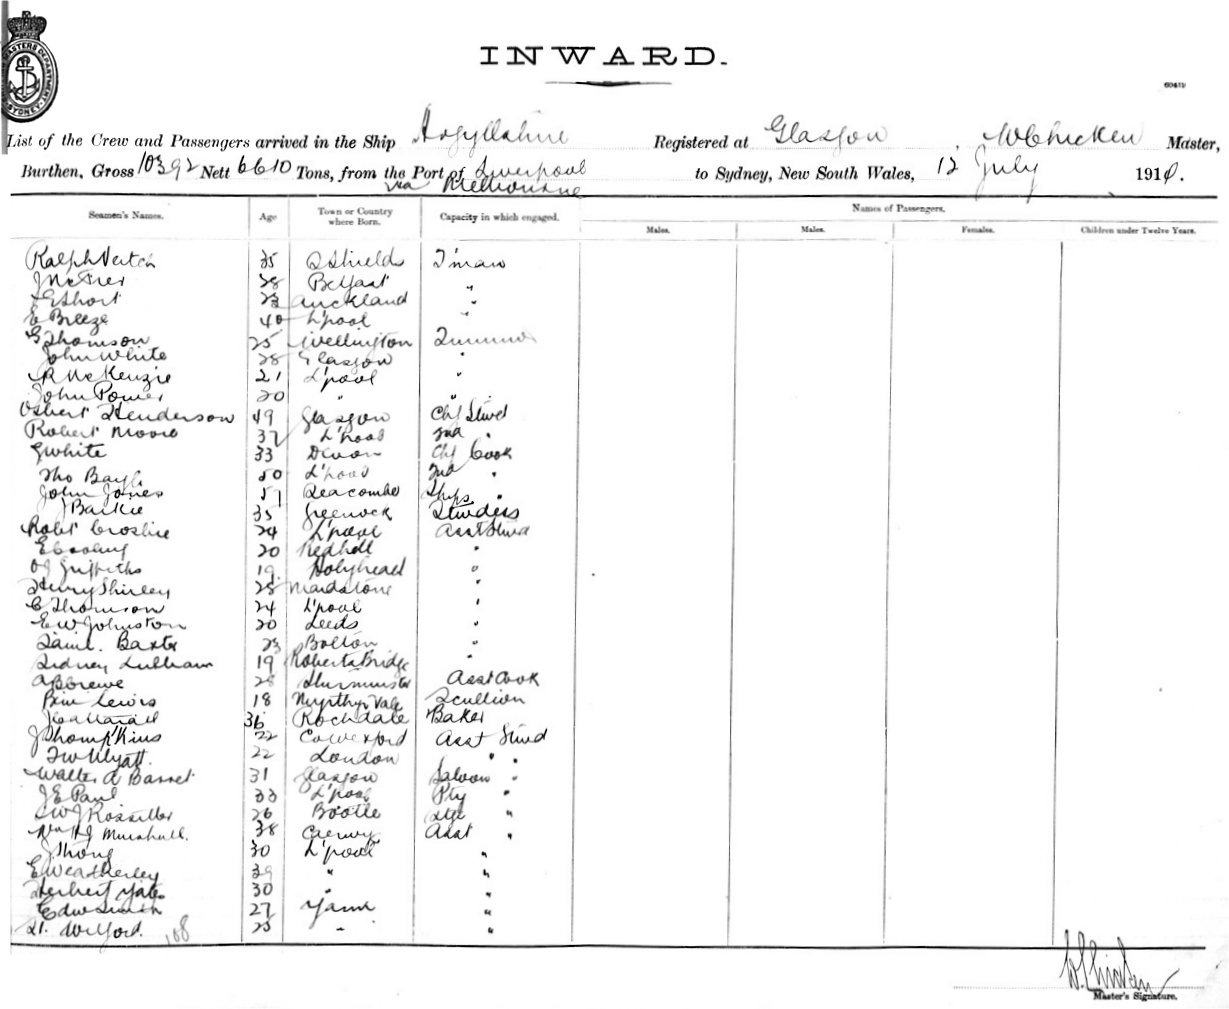 MASTERS DEPARTMENT SYDNEY
INWARD.
60419
List of the Crew and Passengers arrived in the Ship Argyllshire Registered at Glasgow, W Chicken Master,
Burthen, Gross 10392 Nett 6610 Tons, from the Port of Liverpool to Sydney, New South Wales, 12 July 191
via Melbourne
Seamen's Names. Age Town or Country where Born. Capacity in which engaged. Names of Passengers.
Males. Males. Females. Children under Twelve Years.
Ralph Veitch 35 S Shields F'man
J 28 Belfast "
E Short 23 Auckland "
E Breeze 40 L'pool "
G Thomson 25 Wellington Trimmer
John White 28 Glasgow "
R McKenzie 21 L'pool "
John Power 20 " "
Osbert Henderson 49 Glasgow Chf Stwd
Robert Moore 37 L'pool 2nd "
G White 33 Devon Chf Cook
Tho 50 L'pool 2nd "
John Jones 51 Seacombe Ships "
J Barkie 35 Greenock
Robt Crosbie 24 L'pool Asst Stwd
E 20 Redhill "
O J Griffiths 19 Holyhead "
Henry Shirley 25 Maidstone "
C Thomson 24 L'pool "
E W Johnston 20 Leeds "
Saml. Baxter 23 Bolton "
Sidney 19 Roberts Bridge "
28 Sturminster Asst Cook
Ben Lewis 18 Myrthyr Vale Scullion
36 Rochdale Baker
J Thompkins 22 Asst Stwd
F W Wyatt. 22 London " "
Walter A Barret 31 Glasgow Saloon "
J E Paul 33 L'pool Pty "
W J Rossitter 26 Bootle Stge "
Marshall. 38 Asst "
J 30 L'pool "
E Weatherley 39 " "
Herbert Yates 30 " "
Edw Smith 27 "
Welford. 25 " "
108
W Chicken
Master's Signature.